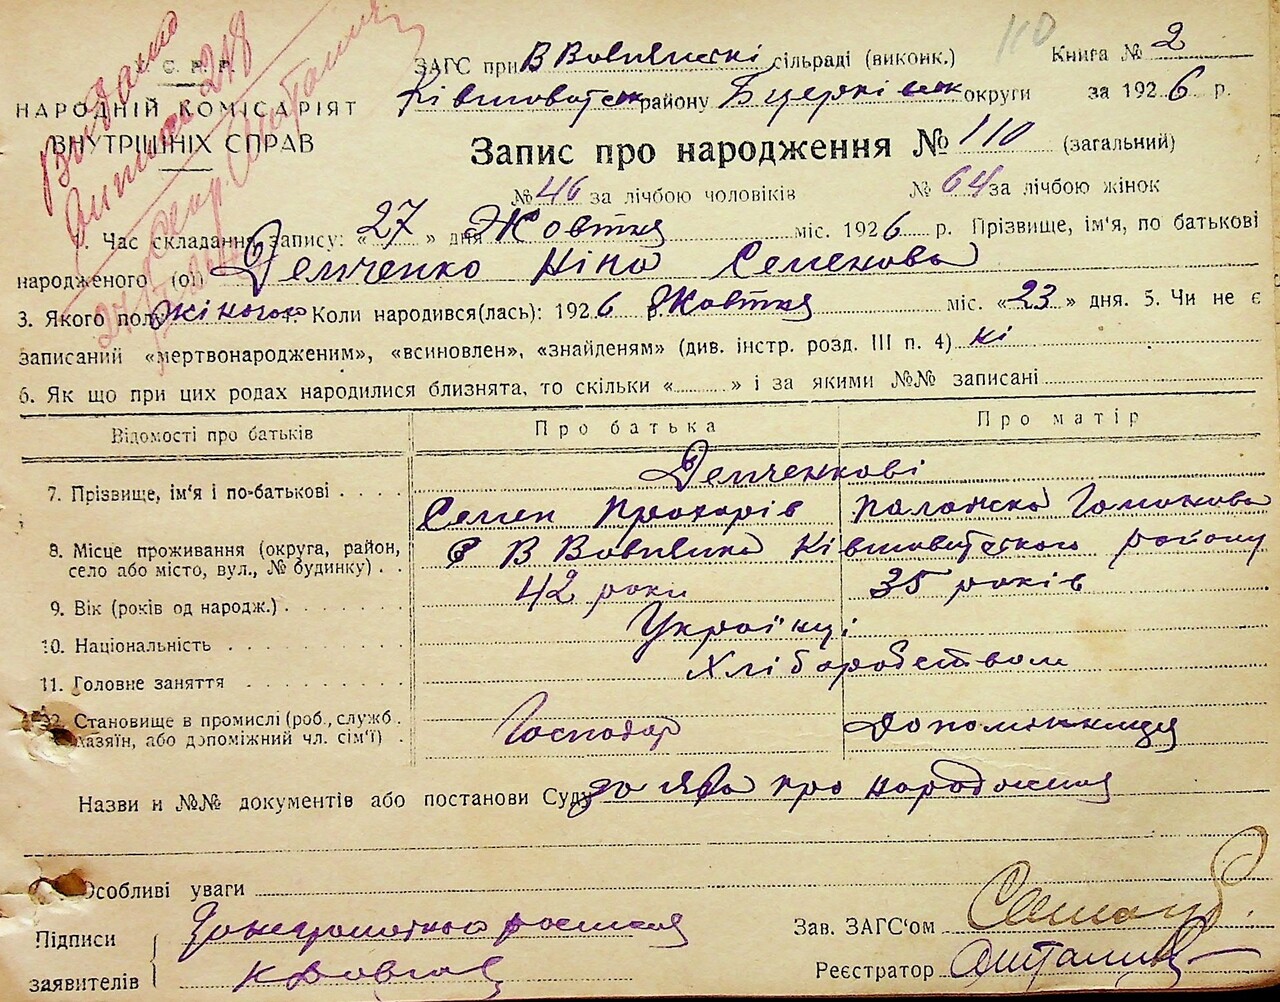 У.С.Р.Р.
НАРОДНІЙ КОМІСАРІЯТ
ВНУТРІШНІХ СПРАВ
Видано
110
ЗАГС при В Вовнянскі сільраді (виконк.) Книга № 2
району округи за 1926 р.
Запис про народження № 110 (загальний)
№ 46 за лічбою чоловіків № 64 за лічбою жінок
1. Час складання запису: «27» дня Жовтня міс. 1926 р. Прізвище, ім'я, по батькові
народженого (ої) Демченко Ніна Семенова
3. Якого полу жіного 4. Коли народився(лась): 1926 р. Жовтня міс. «23» дня. 5. Чи не є
записаний «мертвонародженим», «всиновлен», «знайденям» (див. інстр. розд. III п. 4) ні
6. Як що при цих родах народилися близнята, то скільки «........» і за якими №№ записані
Відомості про батьків Про батька Про матір
7. Прізвище, ім'я і по-батькові . . . . Демченкові
Семен Прохорів
8. Місце проживання (округа, район,
село або місто, вул., № будинку) . . с В Вовнянка району
9. Вік (років од народж.) . . . . . . . 42 роки 35 років
10. Національність . . . . . . . . . . Українці
11. Головне заняття . . . . . . . . . Хліборобством
12. Становище в промислі (роб., служб.
хазяїн, або допоміжний чл. сім'ї) . Господар Допоміжниця
Назви и №№ документів або постанови Суду заява про народження
Особливі уваги
Підписи
заявителів
Зав. ЗАГС'ом
Реєстратор